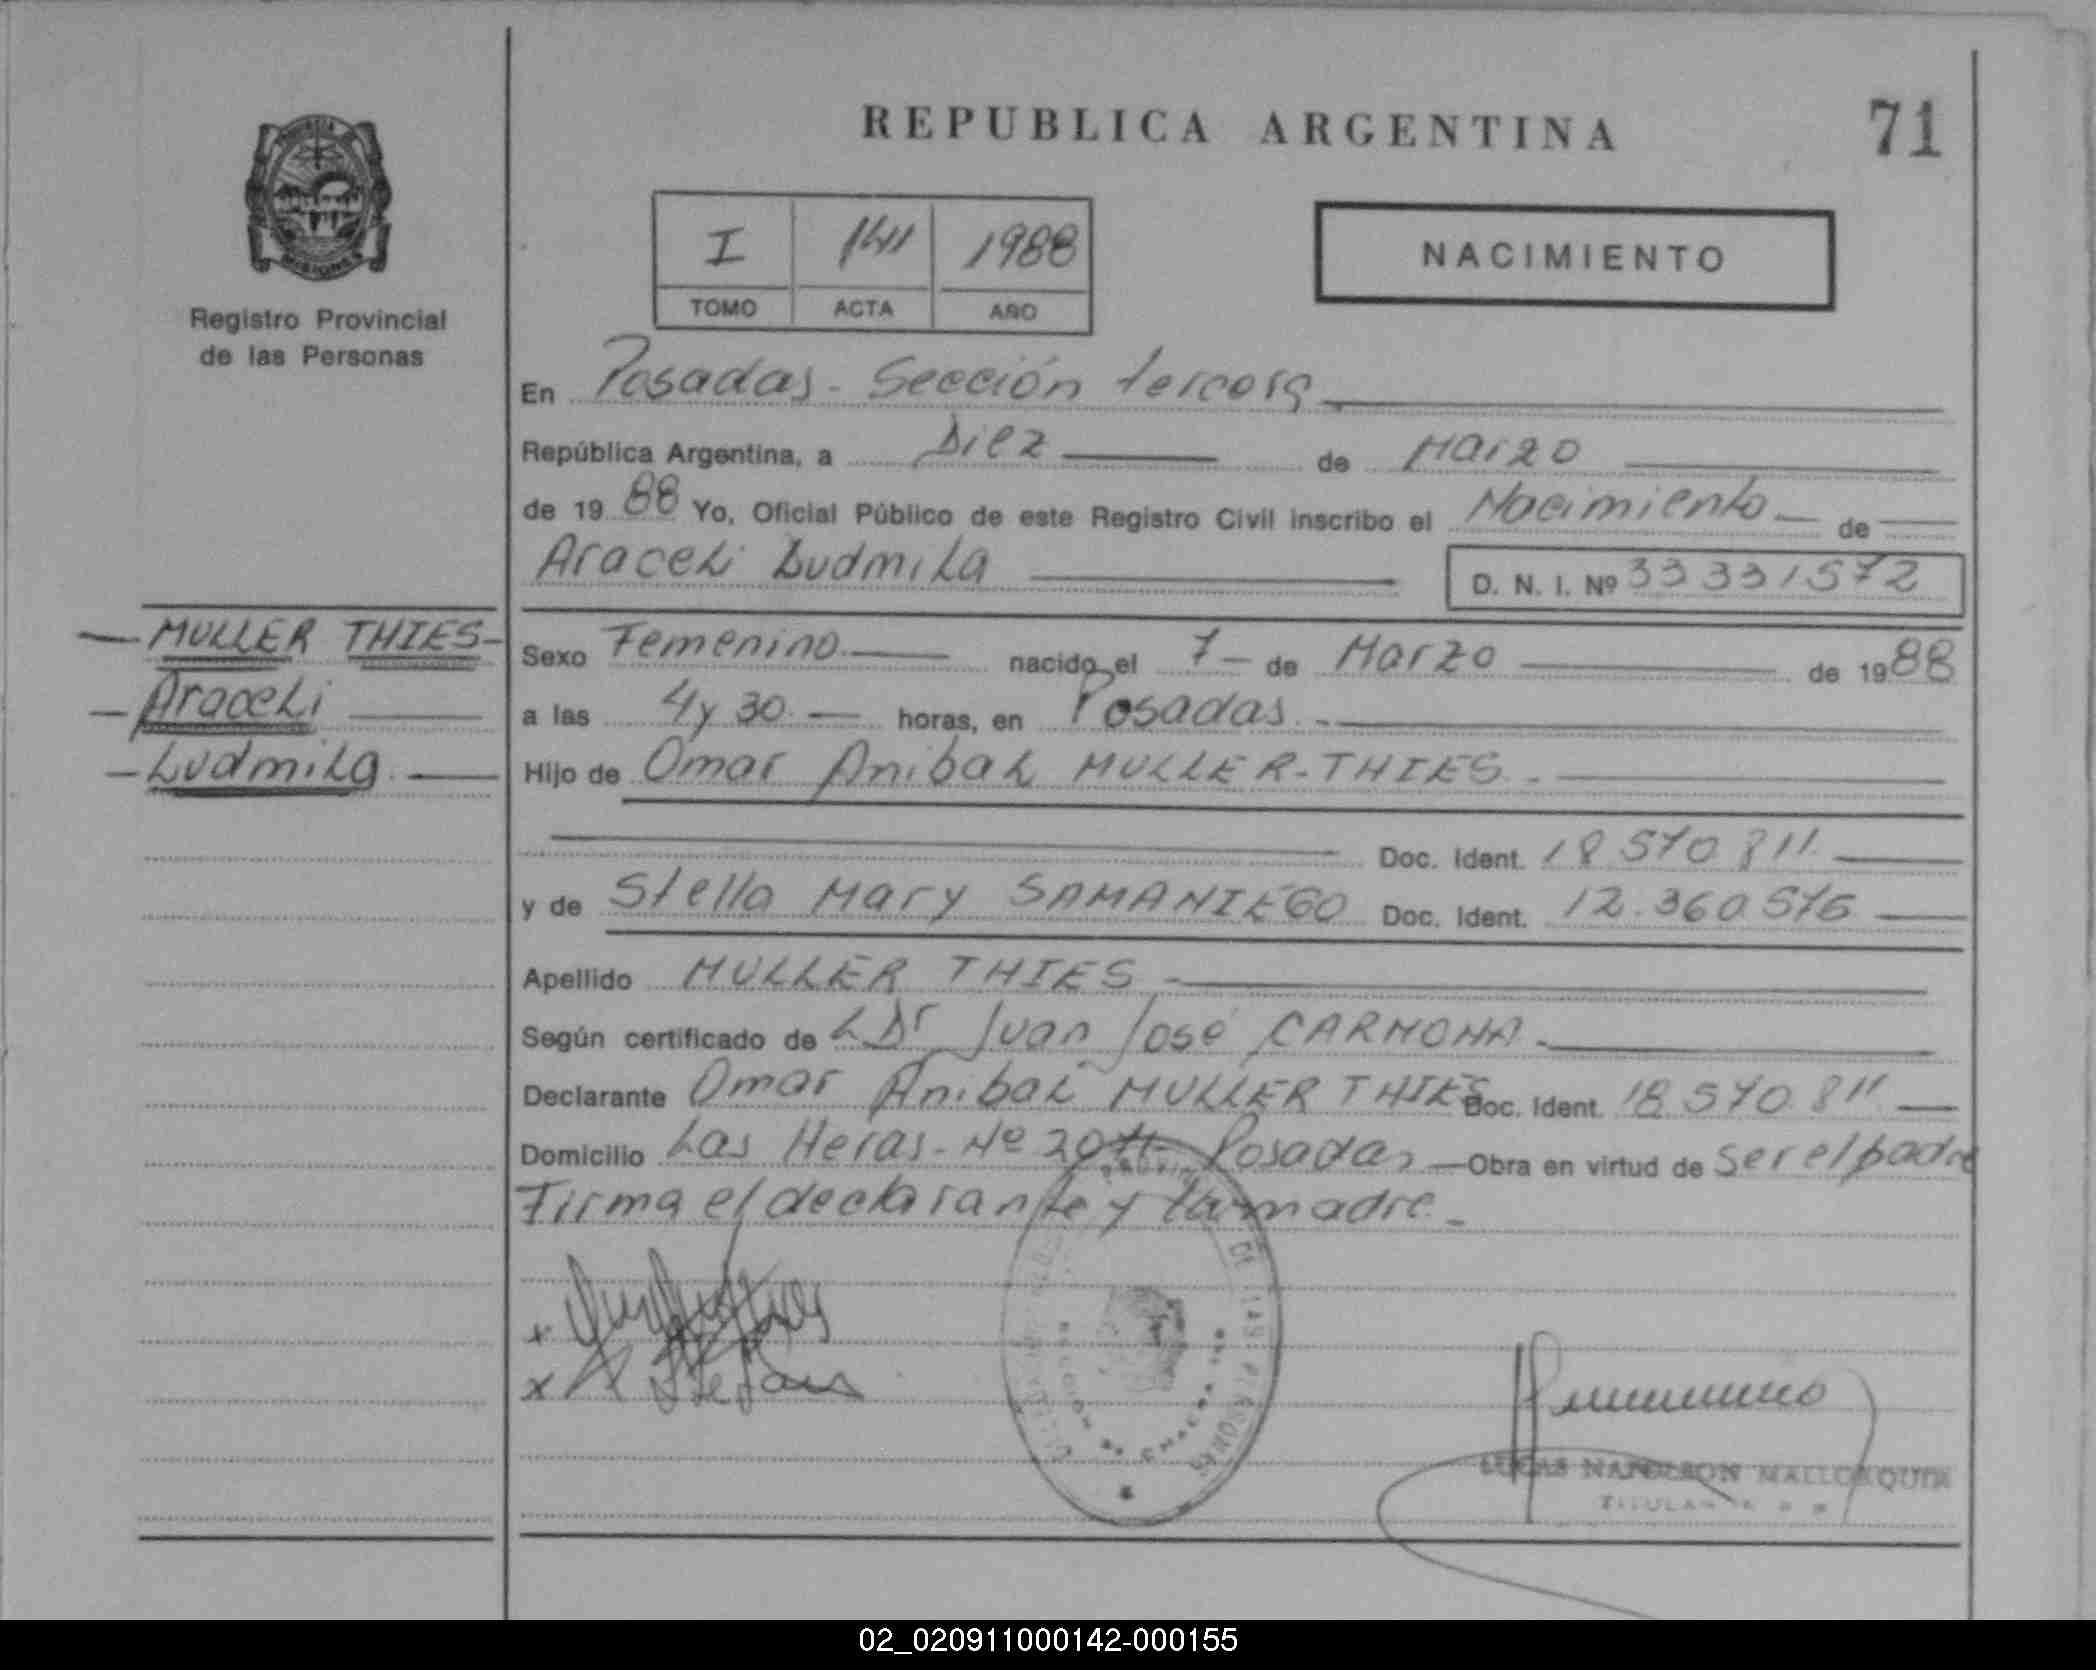 REPUBLICA ARGENTINA
71
PROVINCIA
MISIONES
Registro Provincial
de las Personas
I 141 1988
TOMO ACTA AÑO
NACIMIENTO
En Posadas - Sección tercera
República Argentina, a Diez de Marzo
de 1988 Yo, Oficial Público de este Registro Civil inscribo el Nacimiento de
Araceli Ludmila D. N. I. Nº 33 331572
MULLER THIES
Araceli
Ludmila
Sexo Femenino nacido el 7 de Marzo de 1988
a las 4 y 30 horas, en Posadas
Hijo de Omar Anibal MULLER-THIES
Doc. Ident. 18 570 811
y de Stella Mary SAMANIEGO Doc. Ident. 12.360.576
Apellido MULLER THIES
Según certificado de Dr Juan José CARMONA
Declarante Omar Anibal MULLER THIES Doc. Ident. 18 570 811
Domicilio Las Heras - Nº Posadas Obra en virtud de ser el padre
Firma el declarante y la madre
DE LAS PERSONAS
LUCAS NAPOLEON MALLORQUIN
TITULAR
02_020911000142-000155